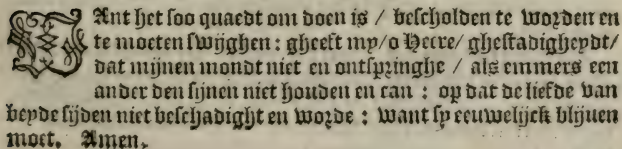 WAnt het soo quaedt om doen is / bescholden te worden en
te moeten swijghen: gheeft my/o Heere/ ghestadigheydt/
dat mijnen mondt niet en ontspringhe / als emmers een
ander den sijnen niet houden en can : op dat de liefde van
beyde sijden niet beschadight en worde : want sy eeuwelijck blijuen
moet. Amen.